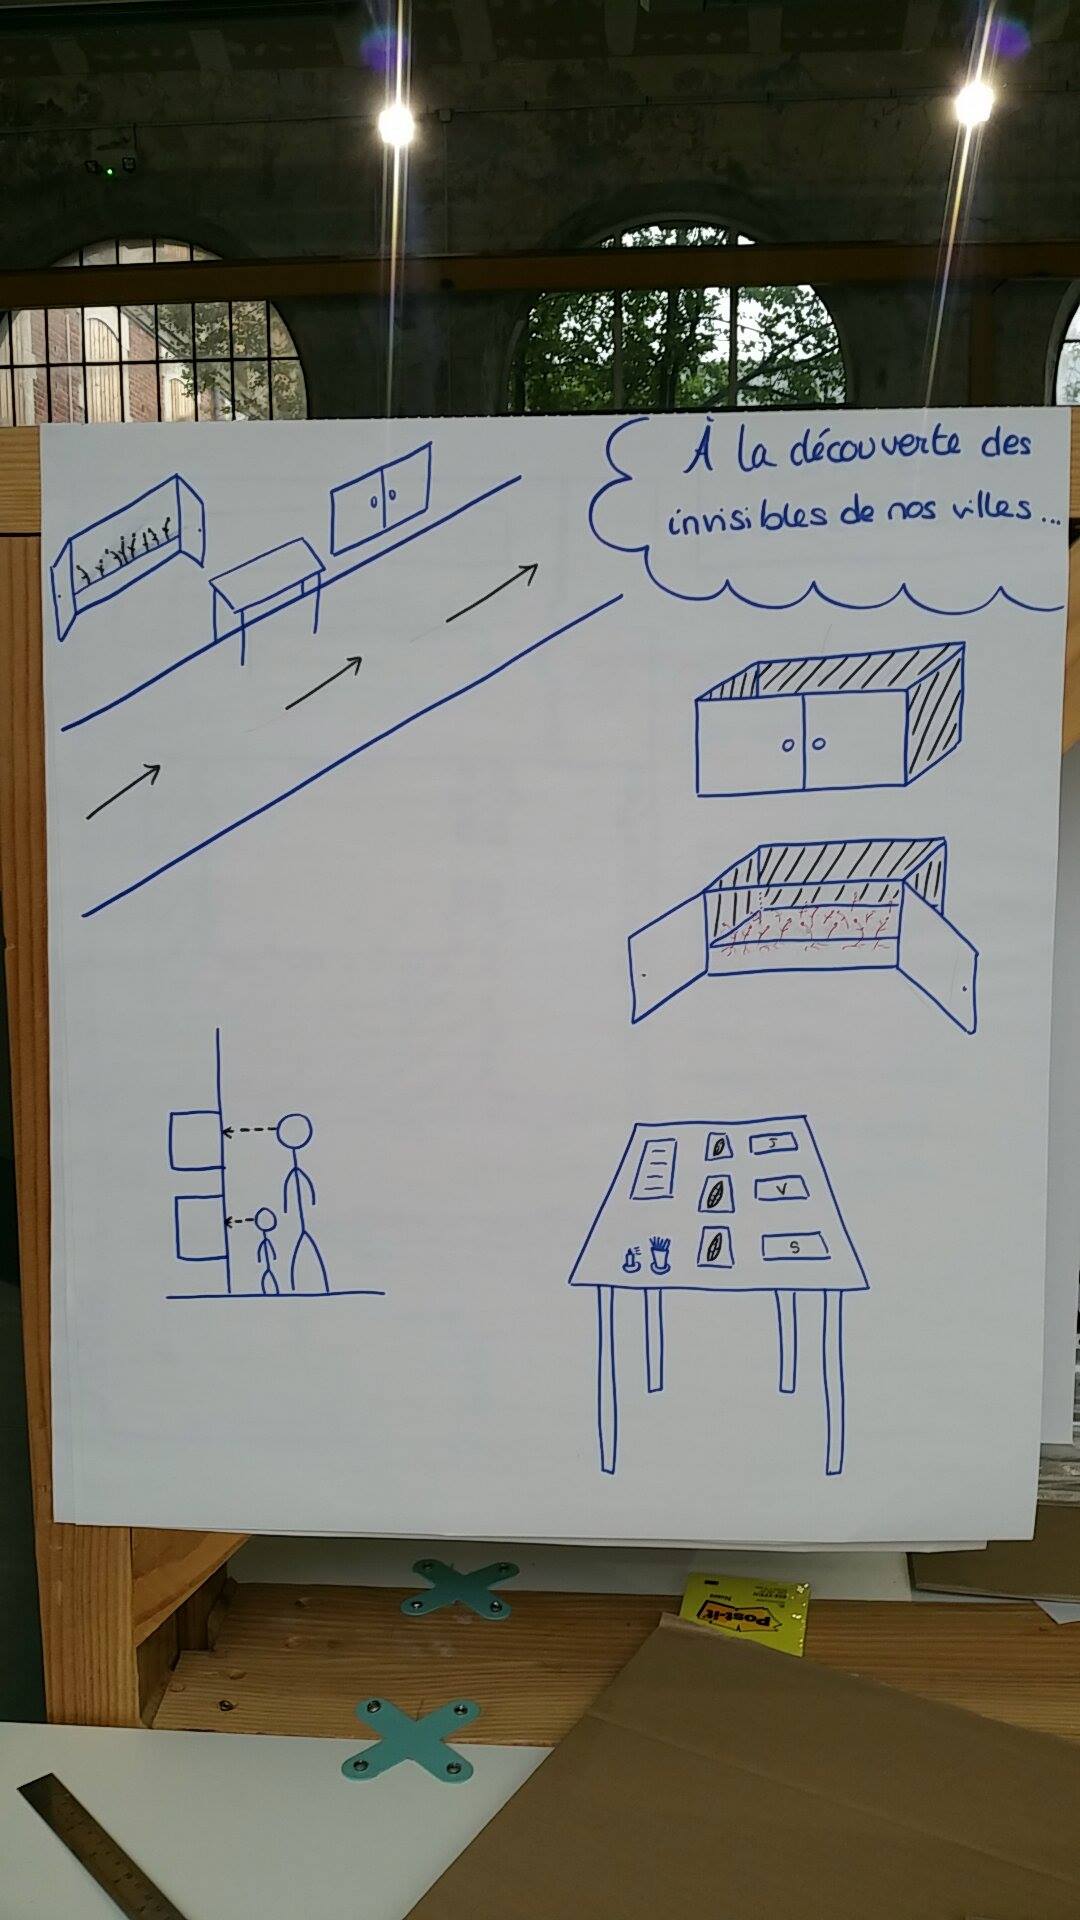 À la découverte des
invisibles de nos villes...
J
V
S
Post-it